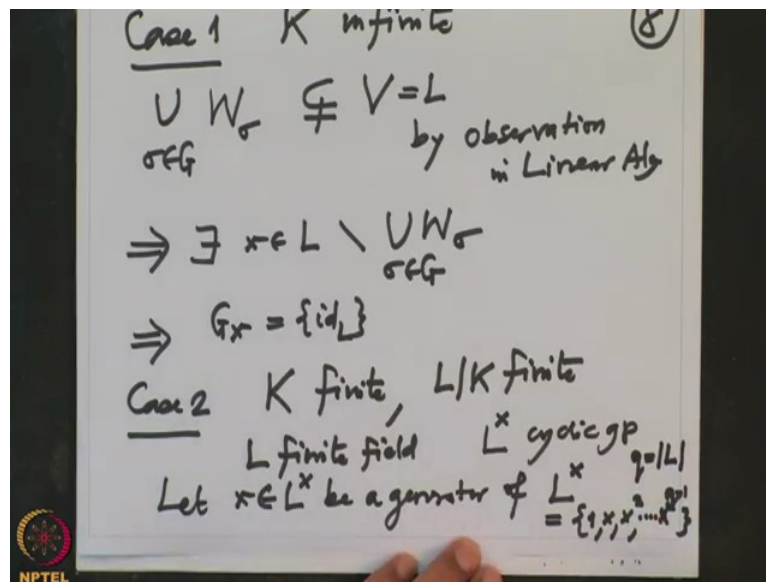 Case 1 K infinite ⑧
∪ W_σ ⊊ V = L
σ∈G by observation
in Linear Alg
⇒ ∃ x ∈ L \ ∪ W_σ
σ∈G
⇒ G_x = {id_L}
Case 2 K finite, L/K finite
L finite field L^× cyclic gp
q = |L|
Let x ∈ L^× be a generator of L^×
= {1, x, x^2, ..., x^{q-1}}
NPTEL